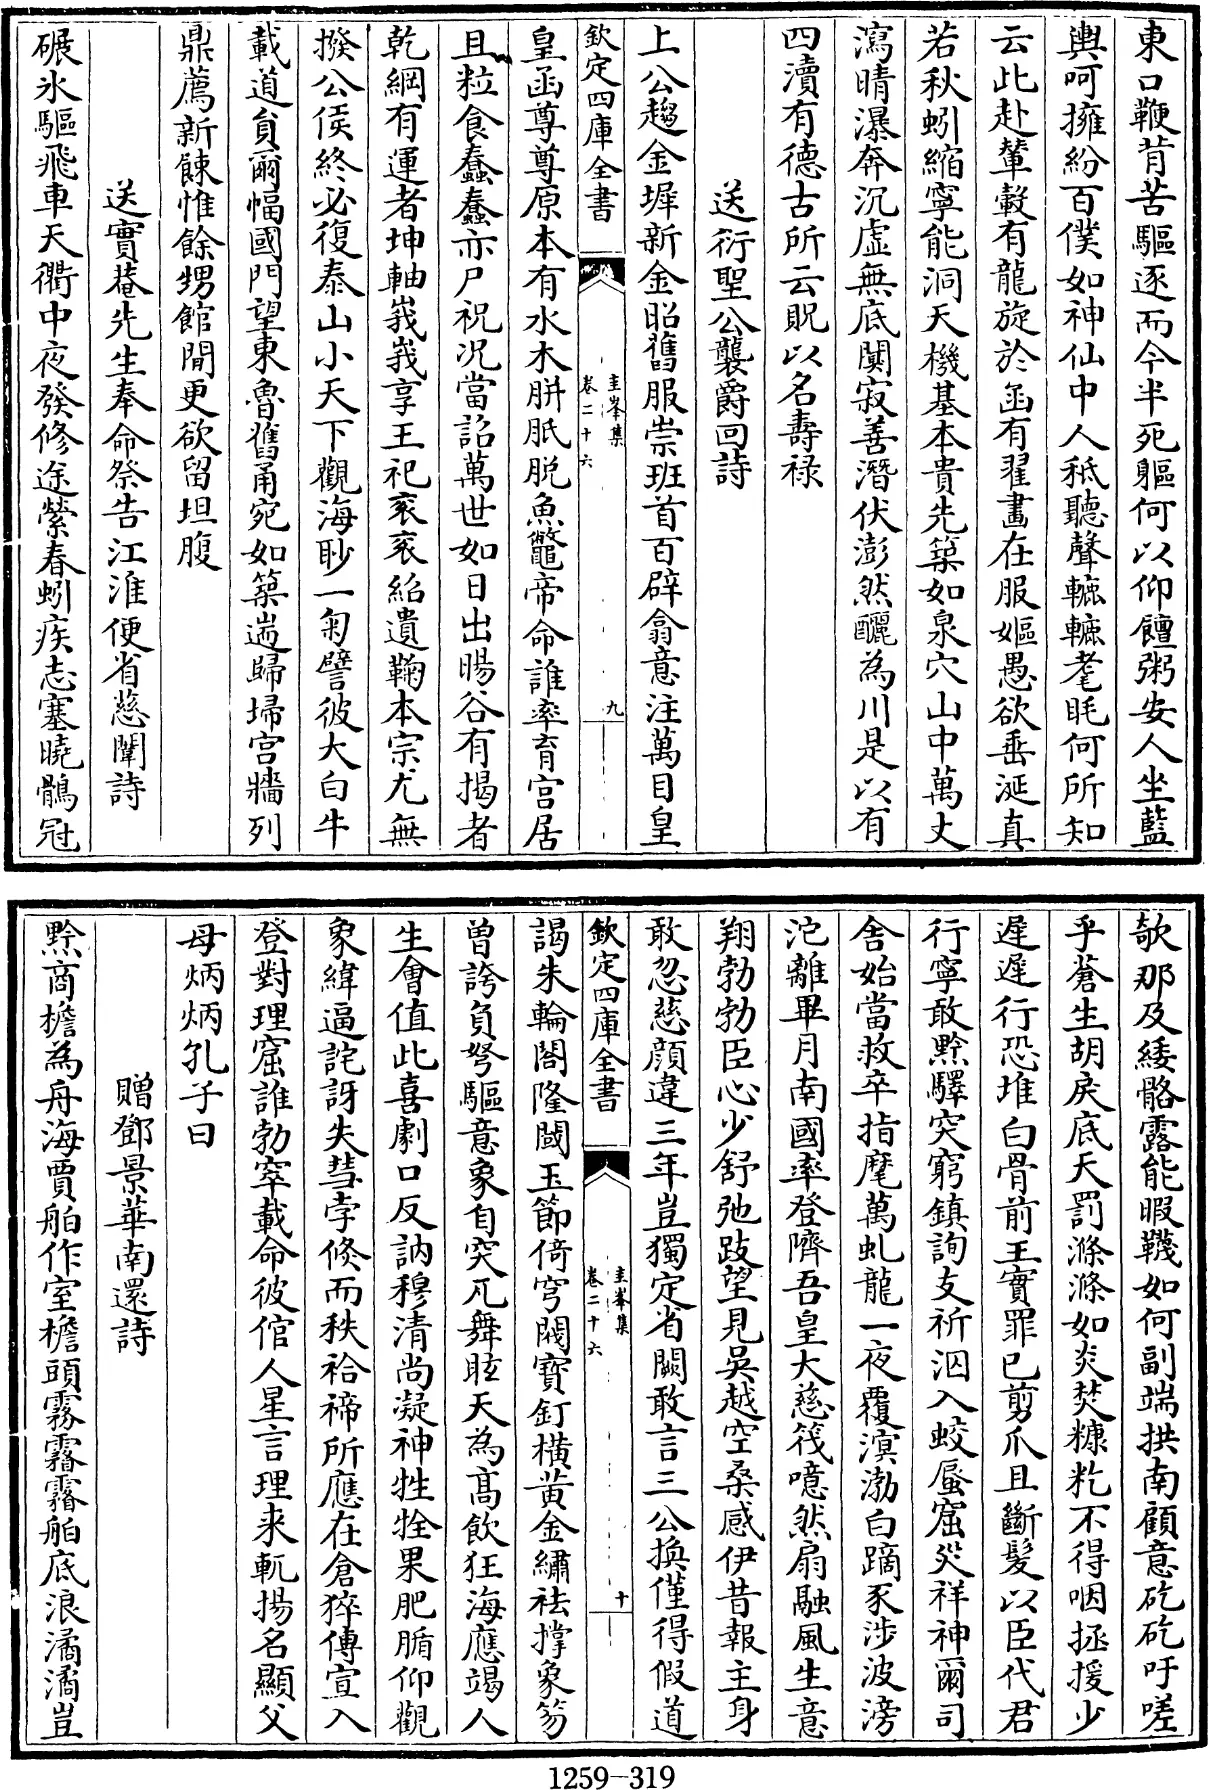 東口鞭背苦驅逐而今半死軀何以仰饘粥安人坐藍
輿呵擁紛百僕如神仙中人秪聽聲轆轆耄眊何所知
云此赴輦轂有龍旋於函有翟畫在服嫗愚欲垂涎真
若秋蚓縮寧能洞天機基本貴先築如泉穴山中萬丈
瀉晴瀑奔沉虛無底闃寂善潛伏澎然釃為川是以有
四瀆有德古所云貺以名壽祿
送衍聖公襲爵回詩
上公趨金墀新金昭舊服崇班首百辟翕意注萬目皇
欽定四庫全書
圭峯集
卷二十六
九
皇函尊尊原本有水木胼胝脫魚鼈帝命誰率育宫居
且粒食蠢蠢亦尸祝況當詔萬世如日出暘谷有揭者
乾綱有運者坤軸峩峩享王祀衮衮紹遺鞠本宗尤無
撥公侯終必復泰山小天下觀海眇一匊譬彼大白牛
載道負爾幅國門望東魯舊甬宛如築遄歸埽宫牆列
鼎薦新餗惟餘甥館閒更欲留坦腹
送實菴先生奉命祭告江淮便省慈闈詩
碾氷驅飛車天衢中夜發修途縈春蚓疾志塞曉鶻冠
欹那及緌骼露能暇韈如何副端拱南顧意矻矻吁嗟
乎蒼生胡戾底天罰滌滌如炎焚糠籺不得咽拯援少
遲遲行恐堆白骨前王實罪已剪爪且斷髮以臣代君
行寧敢黙驛突窮鎮詢支祈泅入蛟蜃窟災祥神爾司
舍始當救卒指麾萬虬龍一夜覆溟渤白蹢豕涉波滂
沱離畢月南國率登隮吾皇大慈筏噫然扇融風生意
翔勃勃臣心少舒弛跂望見吳越空桑感伊昔報主身
敢忽慈顔違三年豈獨定省闕敢言三公換僅得假道
欽定四庫全書
圭峯集
卷二十六
十
謁朱輪閤隆閾玉節倚穹閥寶釘橫黄金繡袪撑象笏
曽誇負弩驅意象自突兀舞眩天為高飲狂海應竭人
生會值此喜劇口反訥穆清尚凝神牲牷果肥腯仰觀
象緯逼詫訝失彗孛倐而秩祫禘所應在倉猝傳宣入
登對理窟誰勃窣載命彼倌人星言理来軏揚名顯父
母炳炳孔子曰
贈鄧景華南還詩
黙商檐為舟海賈舶作室檐頭霧霫霫舶底浪潏潏豈
1259—319